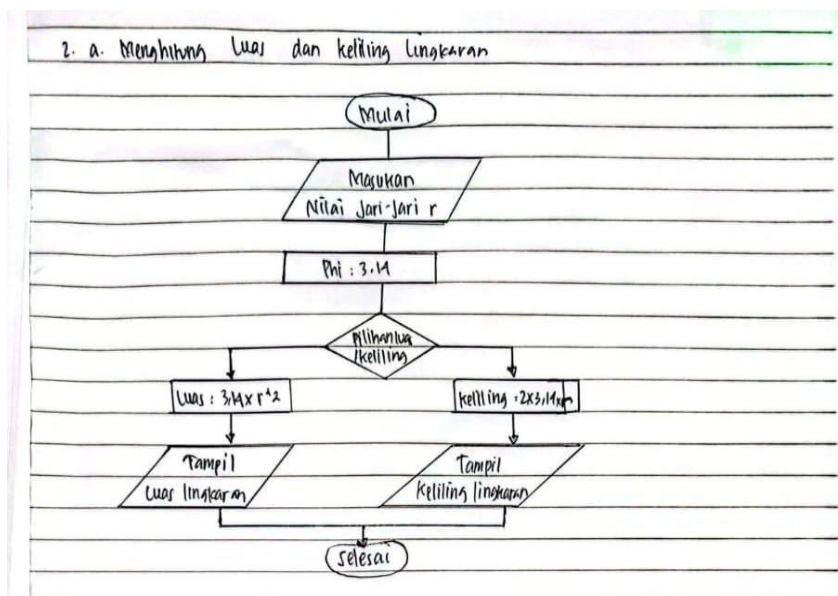 2. a. Menghitung Luas dan keliling Lingkaran
Mulai
Masukan
Nilai Jari-Jari r
Phi : 3,14
Pilihan luas
/keliling
Luas : 3,14 x r^2
keliling : 2x3,14xr
Tampil
Luas lingkaran
Tampil
Keliling lingkaran
Selesai